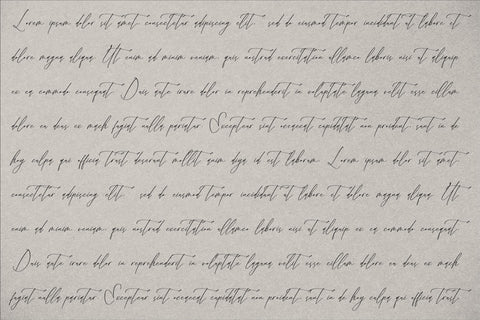 Lorem ipsum dolor sit amet consectetur adipiscing elit. sed do eiusmod tempor incididunt ut labore et
dolore magna aliqua. Ut enim ad minim veniam, quis nostrud exercitation ullamco laboris nisi ut aliquip
ex ea commodo consequat. Duis aute irure dolor in reprehenderit in voluptate laguna velit esse cillum
dolore eu deus ex mach fugiat nulla pariatur. Excepteur sint occaecat cupidatat non proident. sunt in de
hoy culpa qui officia trust deserunt mollit anim diga id est laborum. Lorem ipsum dolor sit amet
consectetur adipiscing elit. sed do eiusmod tempor incididunt ut labore et dolore magna aliqua. Ut
enim ad minim veniam, quis nostrud exercitation ullamco laboris nisi ut aliquip ex ea commodo consequat.
Duis aute irure dolor in reprehenderit in voluptate laguna velit esse cillum dolore eu deus ex mach
fugiat nulla pariatur. Excepteur sint occaecat cupidatat non proident. sunt in de hoy culpa qui officia trust